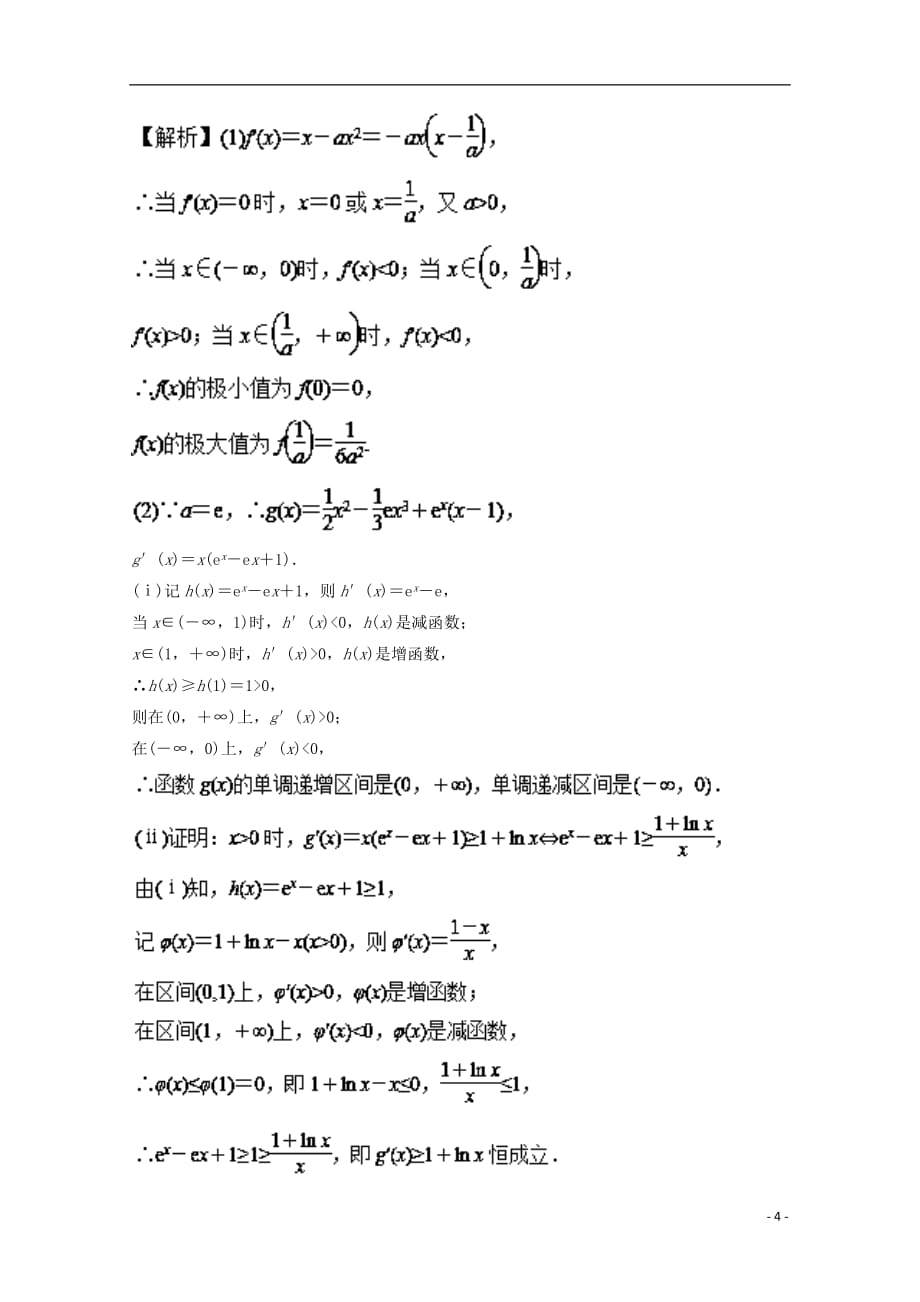 【解析】(1)f′(x)=x-ax²=-ax(x-1/a),
∴当 f′(x)=0 时，x=0 或 x=1/a，又 a>0,
∴当 x∈(-∞，0)时，f′(x)<0；当 x∈(0，1/a)时，
f′(x)>0；当 x∈(1/a，+∞)时，f′(x)<0，
∴f(x)的极小值为 f(0)=0，
f(x)的极大值为 f(1/a)=1/6a².
(2)∵a=e，∴g(x)=1/2x²-1/3ex³+eˣ(x-1)，
g′(x)=x(eˣ-ex+1).
(ⅰ)记 h(x)=eˣ-ex+1，则 h′(x)=eˣ-e，
当 x∈(-∞，1)时，h′(x)<0，h(x)是减函数；
x∈(1，+∞)时，h′(x)>0，h(x)是增函数，
∴h(x)≥h(1)=1>0，
则在(0，+∞)上，g′(x)>0；
在(-∞，0)上，g′(x)<0，
∴函数 g(x)的单调递增区间是(0，+∞)，单调递减区间是(-∞，0).
(ⅱ)证明：x>0 时，g′(x)=x(eˣ-ex+1)≥1+ln x⇔eˣ-ex+1≥(1+ln x)/x，
由(ⅰ)知，h(x)=eˣ-ex+1≥1，
记 φ(x)=1+ln x-x(x>0)，则 φ′(x)=(1-x)/x，
在区间(0,1)上，φ′(x)>0，φ(x)是增函数；
在区间(1，+∞)上，φ′(x)<0，φ(x)是减函数，
∴φ(x)≤φ(1)=0，即 1+ln x-x≤0，(1+ln x)/x≤1，
∴eˣ-ex+1≥1≥(1+ln x)/x，即 g′(x)≥1+ln x 恒成立.
- 4 -